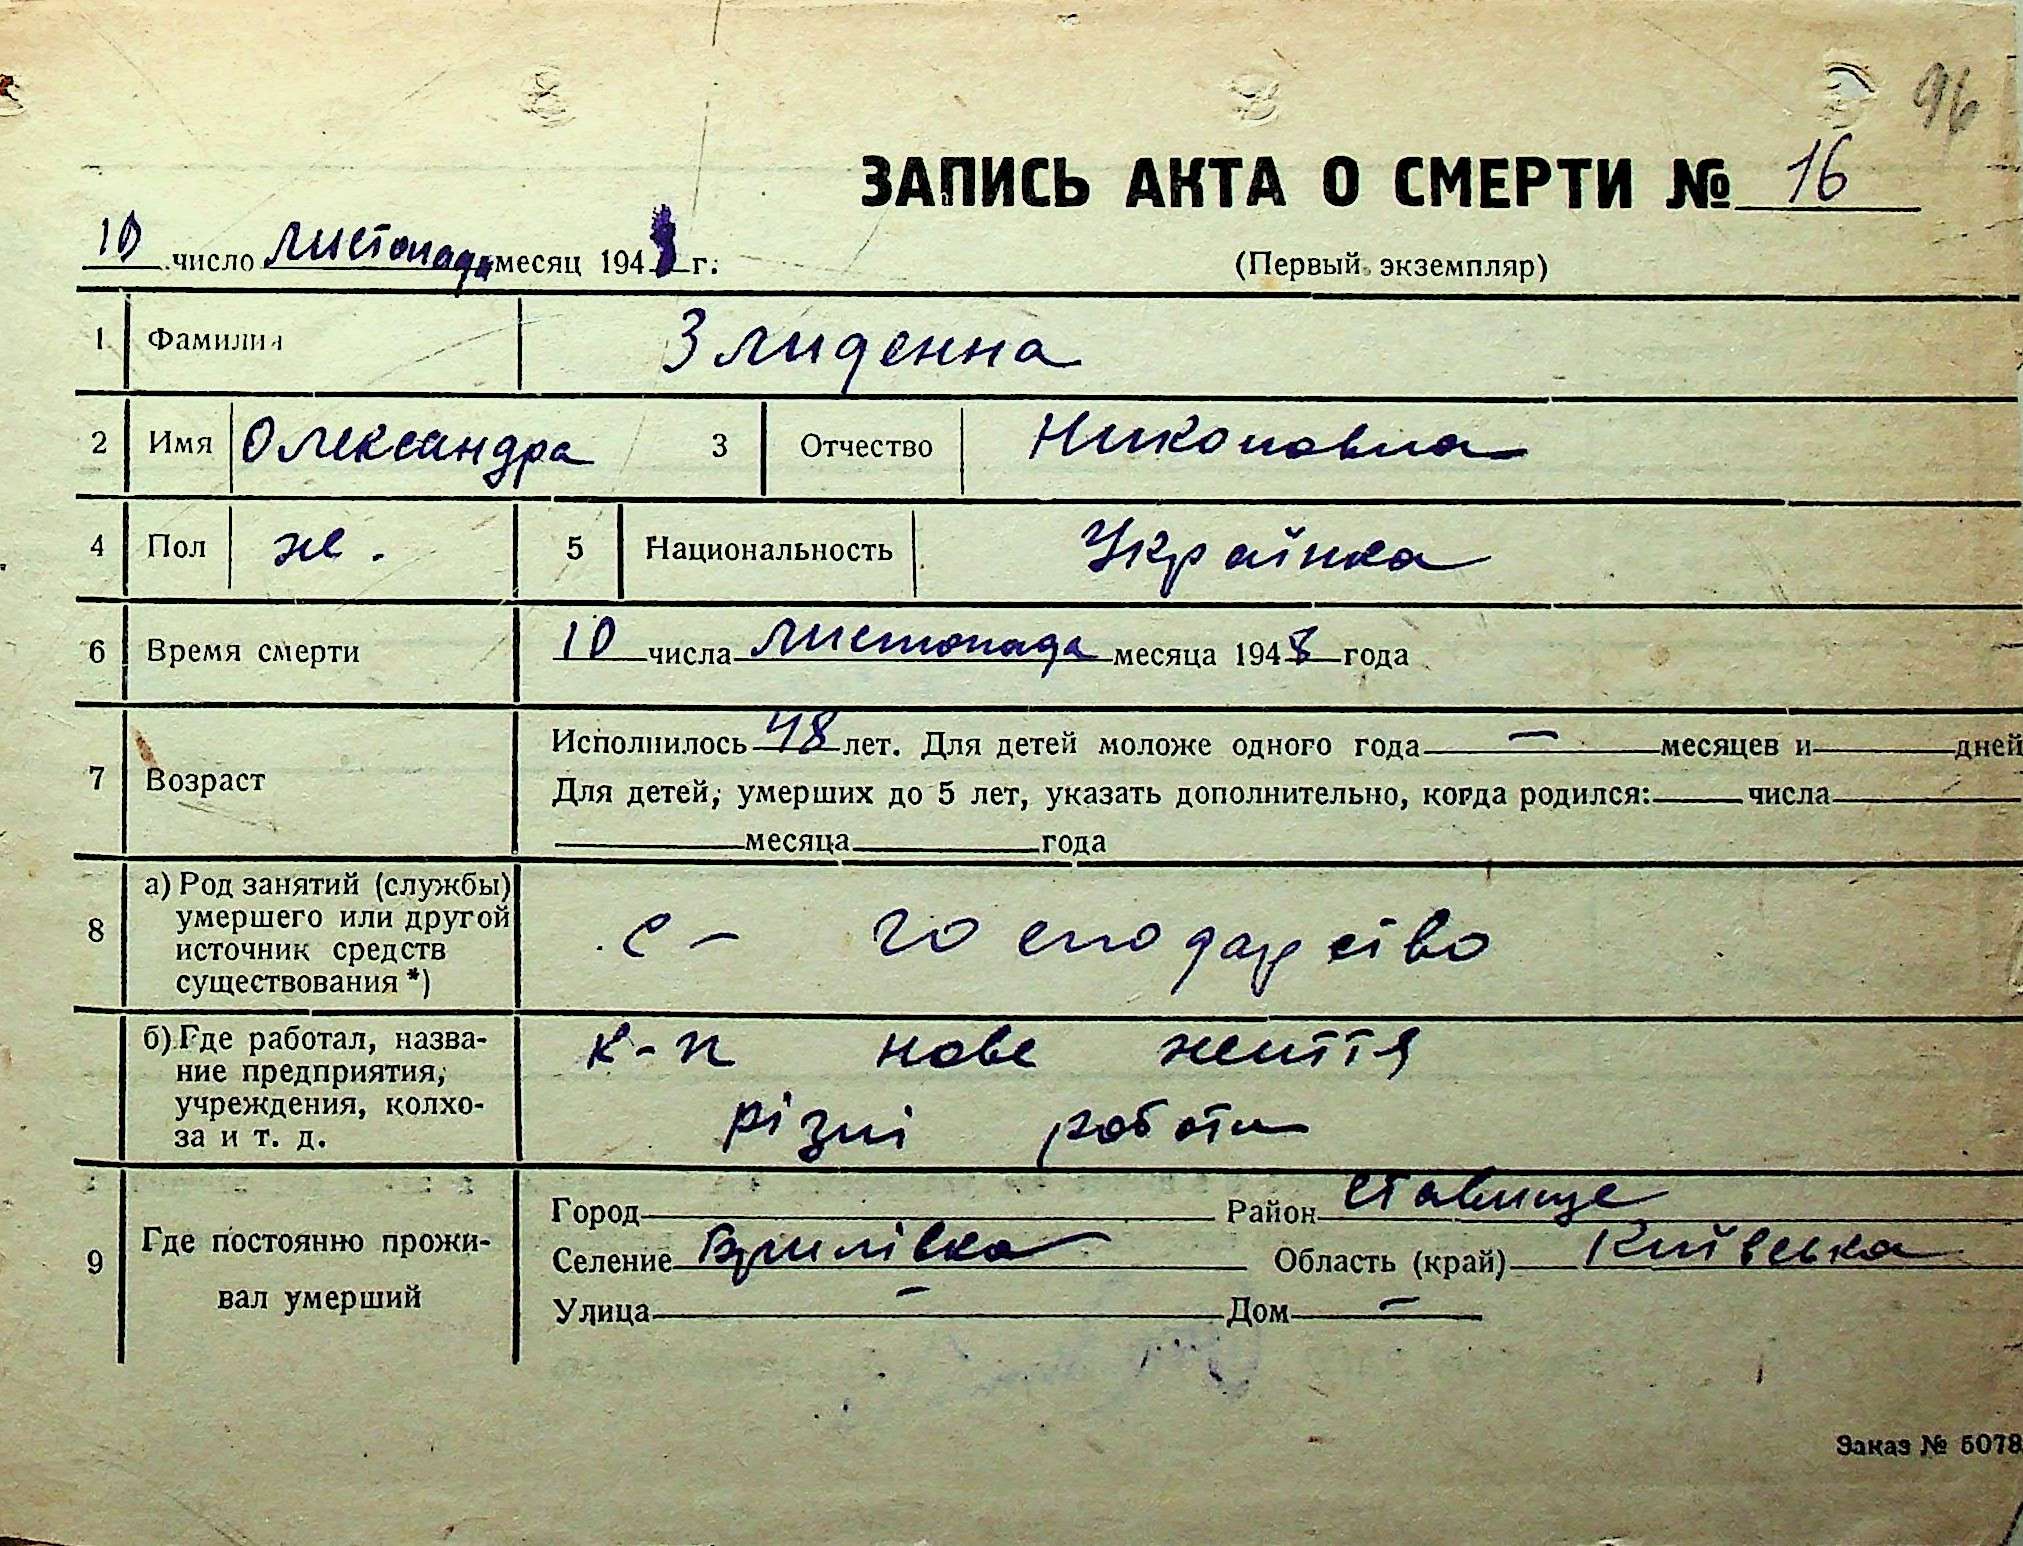 96
ЗАПИСЬ АКТА О СМЕРТИ № 16
10 число листопада месяц 1948 г.
(Первый экземпляр)
1 Фамилия Злиденна
2 Имя Олександра 3 Отчество Никоновна
4 Пол же. 5 Национальность Українка
6 Время смерти 10 числа листопада месяца 1948 года
7 Возраст Исполнилось 48 лет. Для детей моложе одного года — месяцев и дней
Для детей, умерших до 5 лет, указать дополнительно, когда родился: числа
месяца года
8 а) Род занятий (службы)
умершего или другой
источник средств
существования *)
с - господарство
б) Где работал, назва-
ние предприятия,
учреждения, колхо-
за и т. д.
к-п нове життя
різні роботи
9 Где постоянно прожи-
вал умерший
Город Район Ставище
Селение Брилівка Область (край) Київська
Улица — Дом —
Заказ № 5078